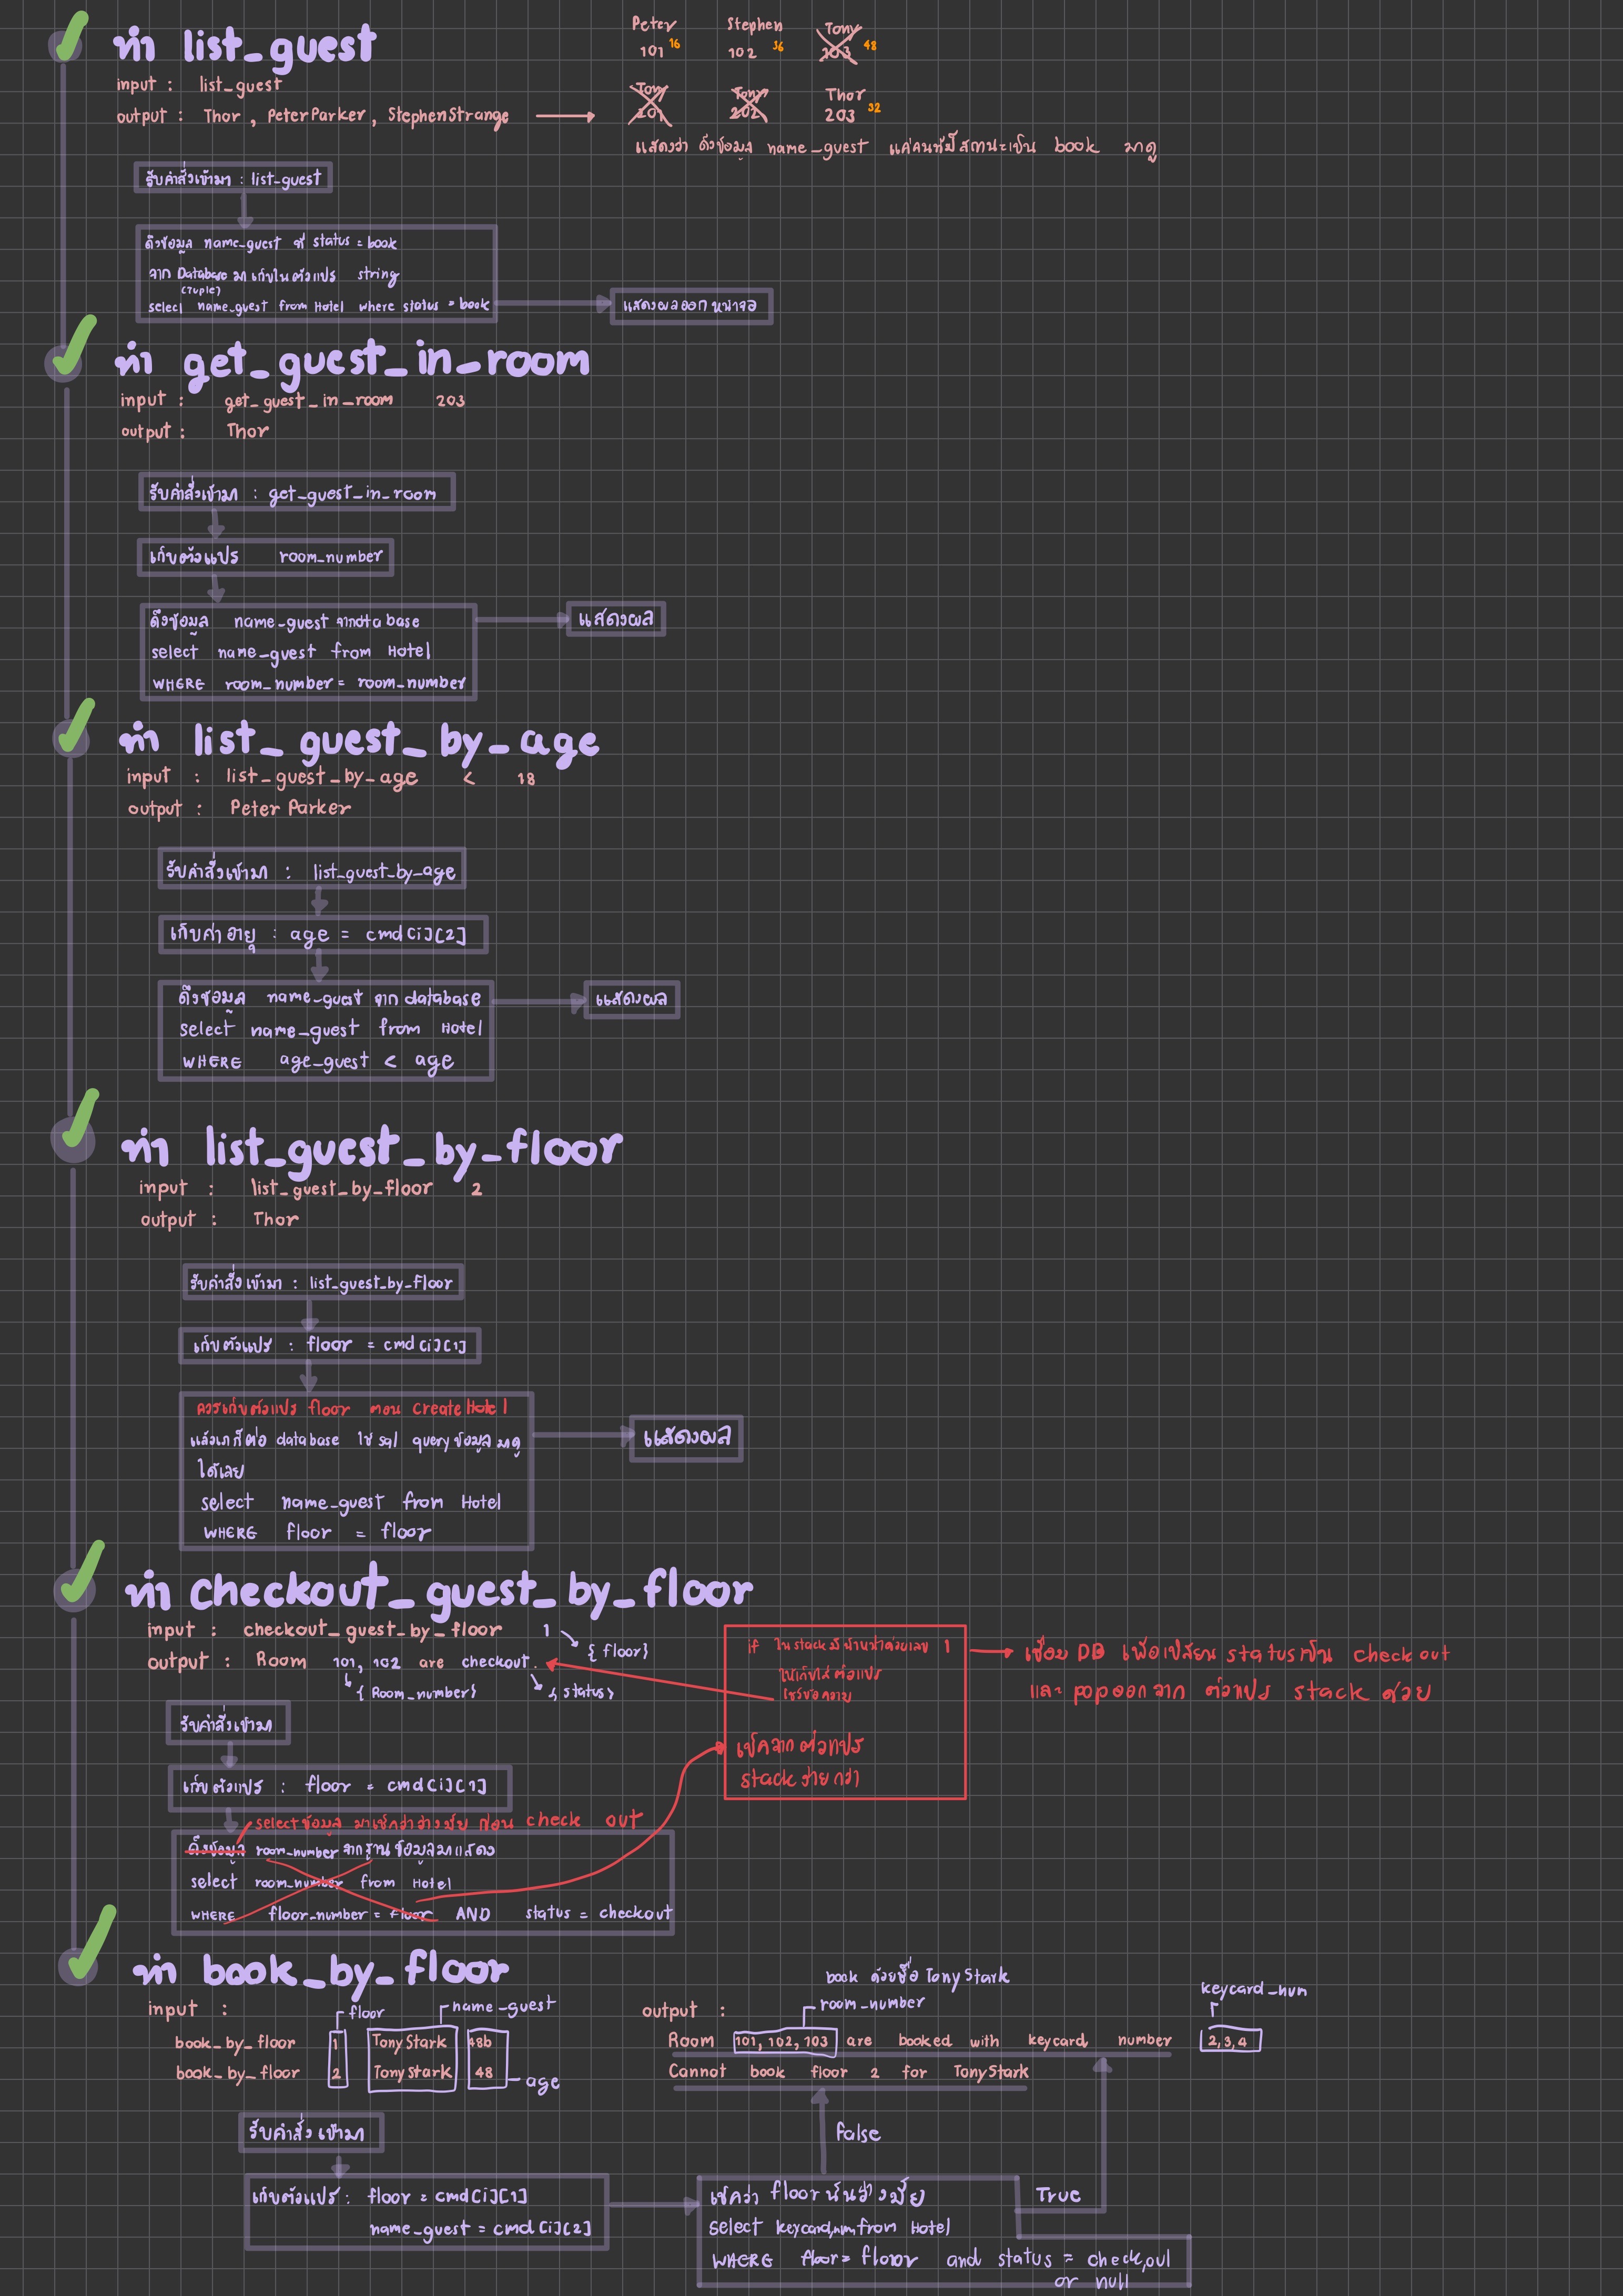 ทำ list_guest
input : list_guest
output : Thor , PeterParker , StephenStrange
Peter Stephen Tony
101 16 102 36 203 48
Tony Tony Thor
201 202 203 32
แสดงว่า ดึงข้อมูล name_guest แค่คนที่มีสถานะเป็น book มาดู
รับคำสั่งเข้ามา : list_guest
ดึงข้อมูล name_guest ที่ status = book
จาก Database มาเก็บในตัวแปร string
(Tuple)
select name_guest from Hotel where status = book
แสดงผลออกหน้าจอ
ทำ get_guest_in_room
input : get_guest_in_room 203
output : Thor
รับคำสั่งเข้ามา : get_guest_in_room
เก็บตัวแปร room_number
ดึงข้อมูล name_guest จากdta base
select name_guest from Hotel
WHERE room_number = room_number
แสดงผล
ทำ list_guest_by_age
input : list_guest_by_age < 18
output : Peter Parker
รับคำสั่งเข้ามา : list_guest_by_age
เก็บค่าอายุ : age = cmd[i][2]
ดึงข้อมูล name_guest จาก database
select name_guest from Hotel
WHERE age_guest < age
แสดงผล
ทำ list_guest_by_floor
input : list_guest_by_floor 2
output : Thor
รับคำสั่งเข้ามา : list_guest_by_floor
เก็บตัวแปร : floor = cmd[i][1]
ควรเก็บตัวแปร floor ตอน Create Hotel
แล้วเราก็ต่อ database ใช้ sql query ข้อมูลมาดู
ได้เลย
select name_guest from Hotel
WHERE floor = floor
แสดงผล
ทำ checkout_guest_by_floor
input : checkout_guest_by_floor 1
{ floor}
output : Room 101, 102 are checkout.
{ Room_number} { status}
if ใน stack มี นำหน้าด้วยเลข 1
ให้เก็บใส่ตัวแปร
โชว์ข้อความ
เช็คจากตัวแปร
stack ง่ายกว่า
เชื่อม DB เพื่อเปลี่ยน status เป็น check out
และ pop ออกจาก ตัวแปร stack ด้วย
รับคำสั่งเข้ามา
เก็บตัวแปร : floor = cmd[i][1]
select ข้อมูล มาเช็คว่าว่างมั้ย ก่อน check out
ดึงข้อมูล room_number จากฐานข้อมูลมาแสดง
select room_number from Hotel
WHERE floor_number = floor AND status = checkout
ทำ book_by_floor
input :
floor name_guest
book_by_floor 1 TonyStark 48b
book_by_floor 2 TonyStark 48
age
book ด้วยชื่อ TonyStark
output : room_number keycard_num
Room 101, 102, 103 are booked with keycard number 2,3,4
Cannot book floor 2 for TonyStark
รับคำสั่งเข้ามา
เก็บตัวแปร : floor = cmd[i][1]
name_guest = cmd[i][2]
False
True
เช็คว่า floor นั้นว่างมั้ย
select keycard_num from Hotel
WHERE floor = floor and status = check_out
or null